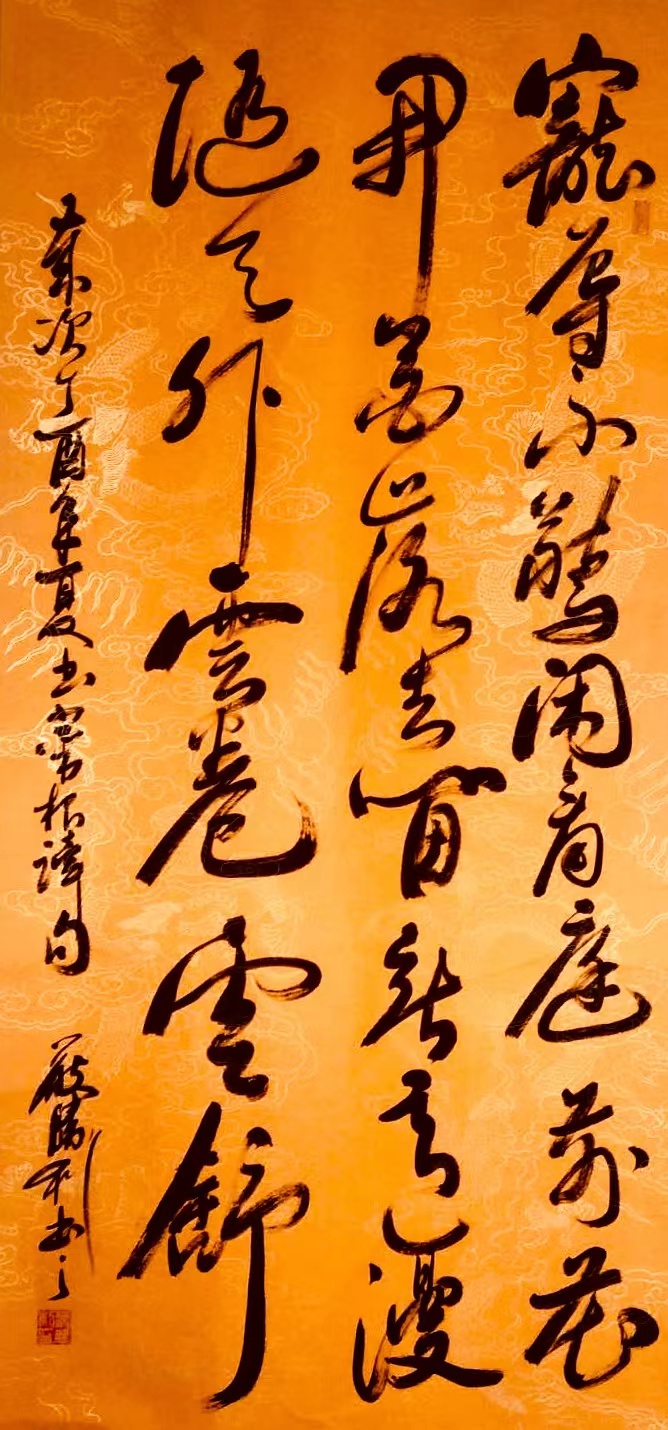 寵辱不驚閑看庭前花
開花落去留無意漫
隨天外雲卷雲舒
歲次丁酉年夏書菜根譚句 嚴勝利書之